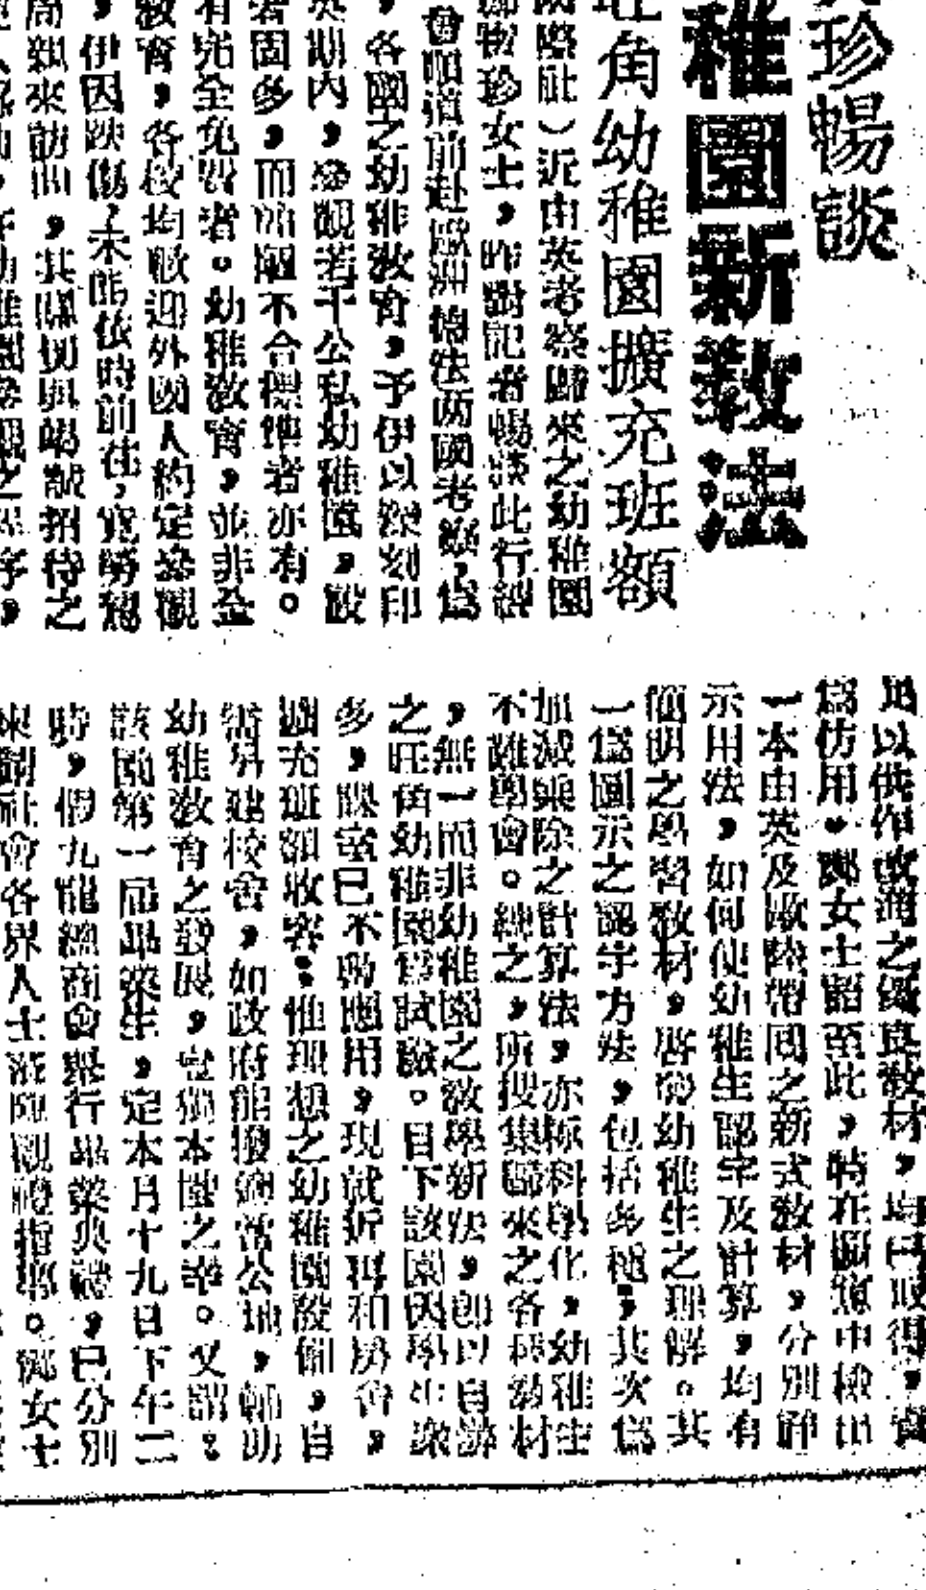 珍暢談
稚園新教法
旺角幼稚園擴充班額
國際社）近由英考察歸來之幼稚園
珍女士，昨對記者暢談此行經
會順道前赴歐洲德法兩國考察，為
，各國之幼稚教育，予伊以深刻印
期內，參觀若干公私幼稚園，設
者固多，而簡陋不合標準者亦有。
有完全免費者。幼稚教育，並非全
教育，各校均歡迎外國人約定參觀
，伊因跌傷未能依時前往，竟勞
親來訪問，其關切與竭誠招待之
以供作改進之優良教材，均已取得，
為仿用。鄺女士談至此，特在櫥窗中檢出
一本由英及歐陸帶回之新式教材，分別解
示用法，如何使幼稚生認字及計算，均有
簡明之學習教材，啓發幼稚生之理解。其
一為圖示之認字方法，包括多種；其次為
加減乘除之計算法，亦極科學化，幼稚生
不難學會。總之，所搜集歸來之各種教材
，無一而非幼稚園之教學新法，即以自辦
之旺角幼稚園為試驗。目下該園因學生衆
多，課室已不夠應用，現就折再和房舍，
擴充班額收容；惟理想之幼稚園設備，自
需另建校舍，如政府能撥適當公地，輔助
幼稚教育之發展，豈獨本園之幸。又謂：
該園第一屆畢業生，定本月十九日下午二
時，假九龍總商會舉行畢業典禮，已分別
柬請社會各界人士蒞臨觀禮指導。鄺女士